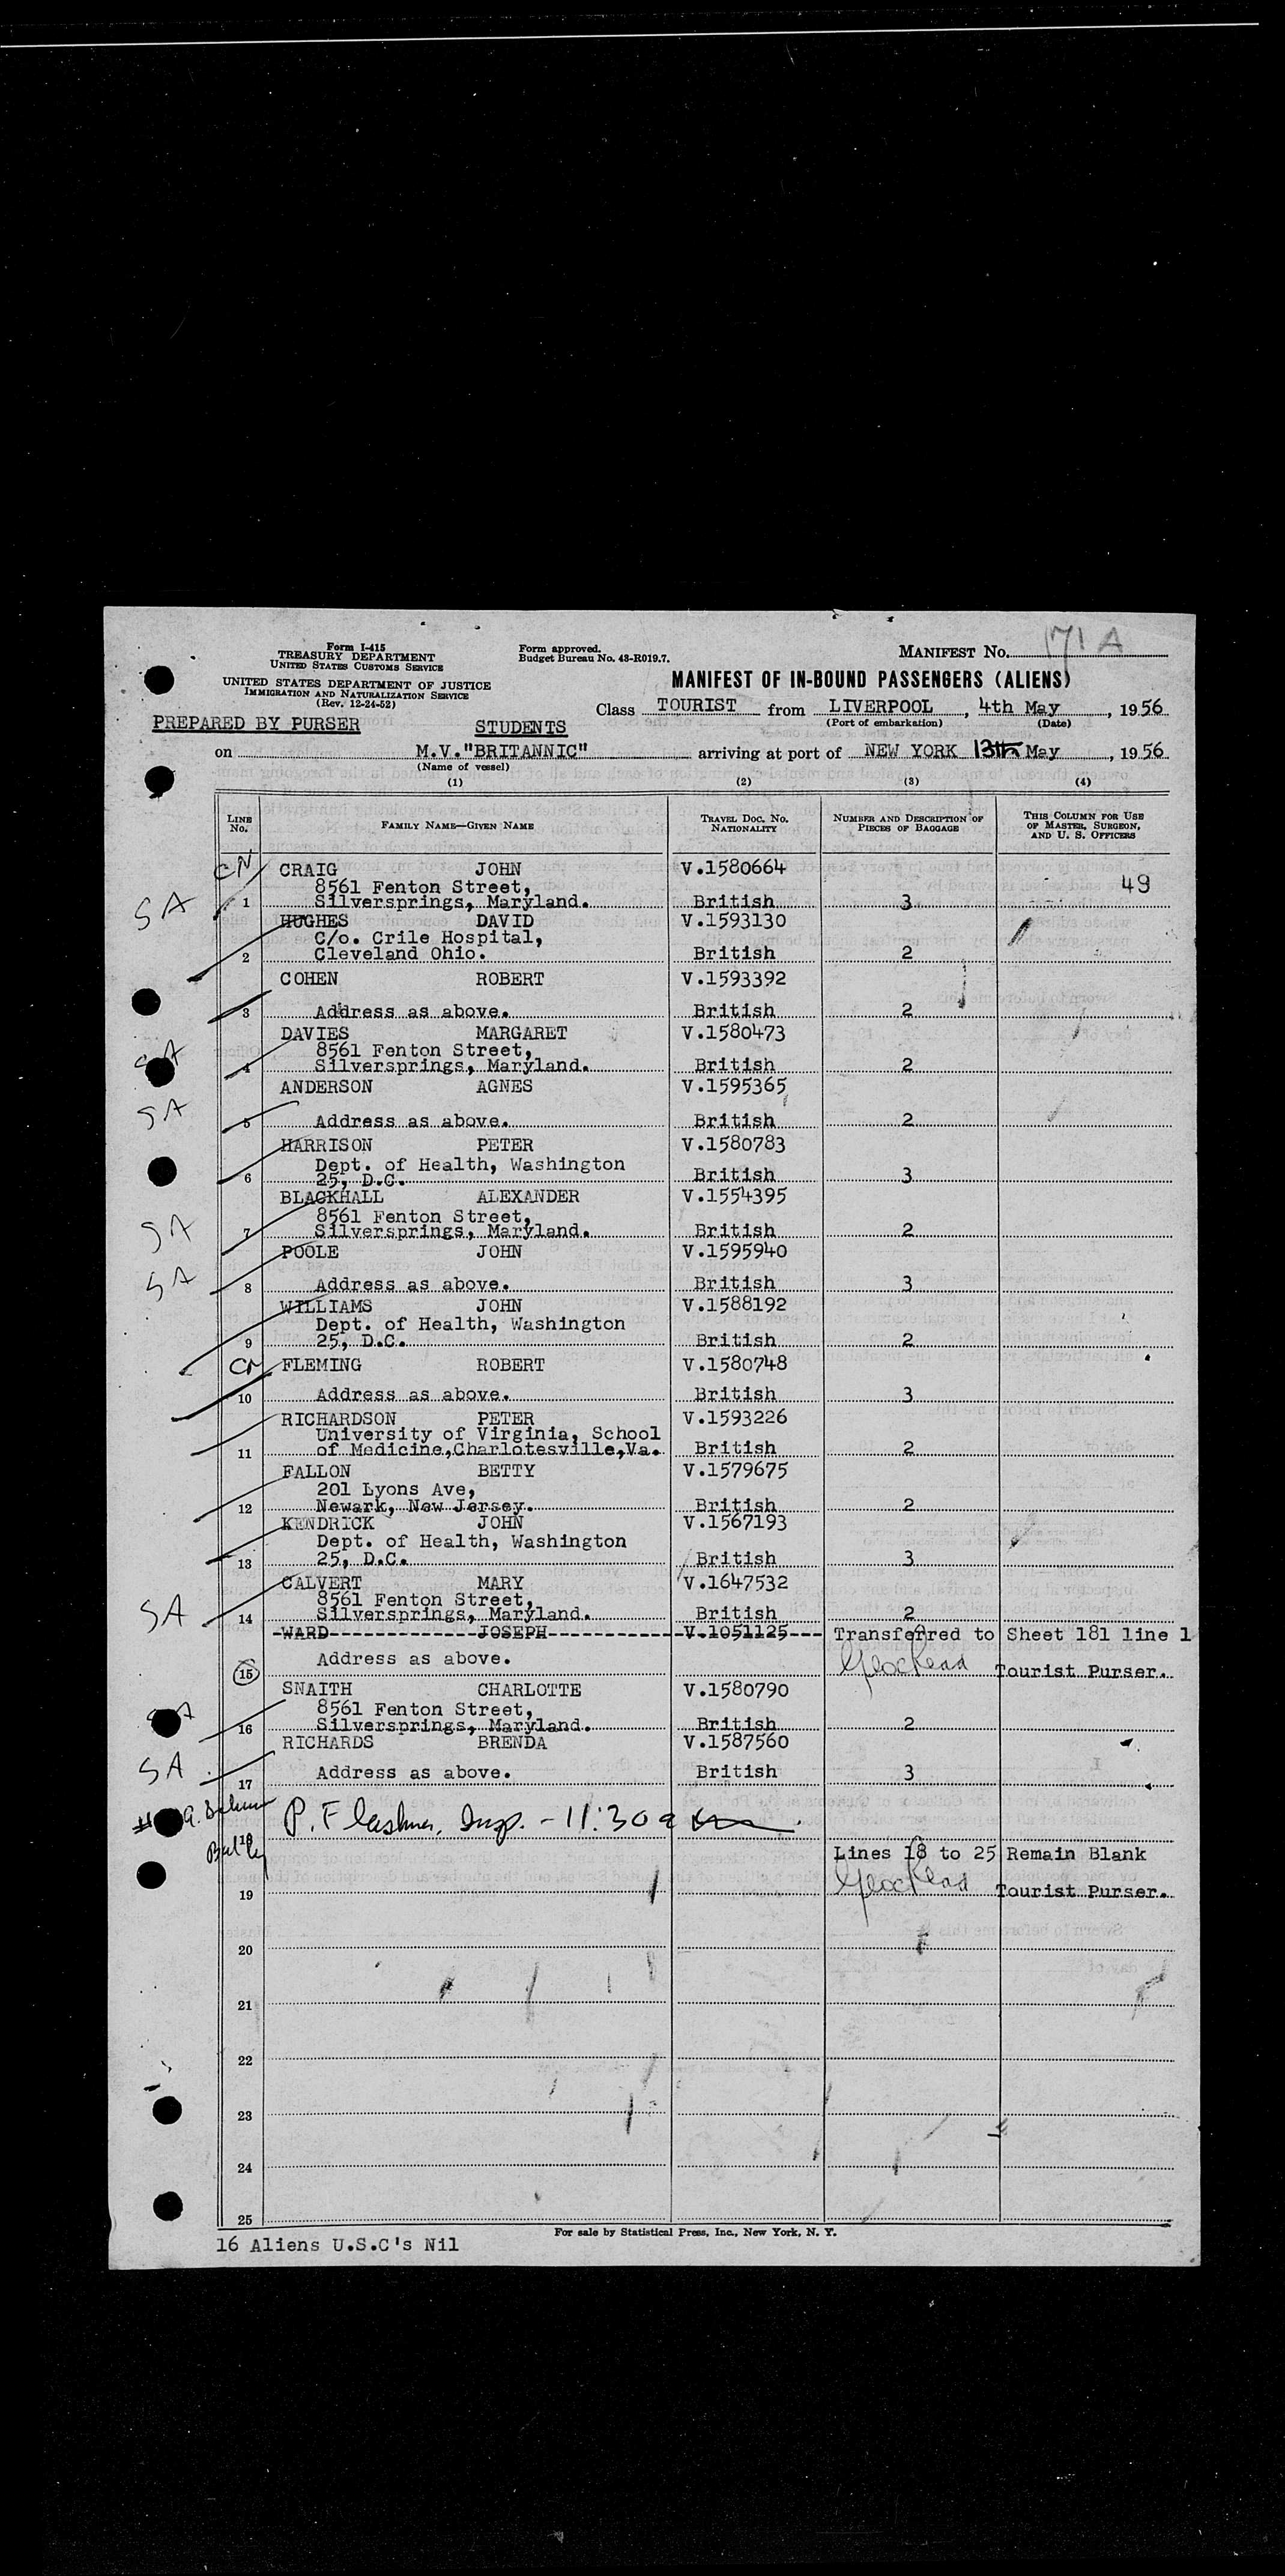 Form I-415
TREASURY DEPARTMENT
UNITED STATES CUSTOMS SERVICE
UNITED STATES DEPARTMENT OF JUSTICE
IMMIGRATION AND NATURALIZATION SERVICE
(Rev. 12-24-52)
Form approved.
Budget Bureau No. 43-R019.7.
MANIFEST No. 71 A
MANIFEST OF IN-BOUND PASSENGERS (ALIENS)
Class TOURIST from LIVERPOOL, 4th May, 1956
(Port of embarkation) (Date)
PREPARED BY PURSER STUDENTS
on M.V."BRITANNIC" arriving at port of NEW YORK 13th May, 1956
(Name of vessel)
(1) (2) (3) (4)
LINE No. FAMILY NAME—GIVEN NAME TRAVEL DOC. NO. NATIONALITY NUMBER AND DESCRIPTION OF PIECES OF BAGGAGE THIS COLUMN FOR USE OF MASTER, SURGEON, AND U. S. OFFICERS
CN CRAIG JOHN V.1580664
8561 Fenton Street, 49
SA 1 Silversprings, Maryland. British 3
HUGHES DAVID V.1593130
C/o. Crile Hospital,
2 Cleveland Ohio. British 2
COHEN ROBERT V.1593392
3 Address as above. British 2
DAVIES MARGARET V.1580473
8561 Fenton Street,
SA 4 Silversprings, Maryland. British 2
ANDERSON AGNES V.1595365
SA 5 Address as above. British 2
HARRISON PETER V.1580783
Dept. of Health, Washington
6 25, D.C. British 3
BLACKHALL ALEXANDER V.1554395
8561 Fenton Street,
SA 7 Silversprings, Maryland. British 2
POOLE JOHN V.1595940
SA 8 Address as above. British 3
WILLIAMS JOHN V.1588192
Dept. of Health, Washington
9 25, D.C. British 2
FLEMING ROBERT V.1580748
10 Address as above. British 3
RICHARDSON PETER V.1593226
University of Virginia, School
11 of Medicine,Charlotesville,Va. British 2
FALLON BETTY V.1579675
201 Lyons Ave,
12 Newark, New Jersey. British 2
KENDRICK JOHN V.1567193
Dept. of Health, Washington
13 25, D.C. British 3
CALVERT MARY V.1647532
8561 Fenton Street,
SA 14 Silversprings, Maryland. British 2
WARD JOSEPH V.1051125 Transferred to Sheet 181 line 1
15 Address as above. Tourist Purser.
SNAITH CHARLOTTE V.1580790
8561 Fenton Street,
SA 16 Silversprings, Maryland. British 2
RICHARDS BRENDA V.1587560
SA 17 Address as above. British 3
Insp. - 11:30 a
18
Lines 18 to 25 Remain Blank
19 Tourist Purser.
20
21
22
23
24
25
For sale by Statistical Press, Inc., New York, N. Y.
16 Aliens U.S.C's Nil